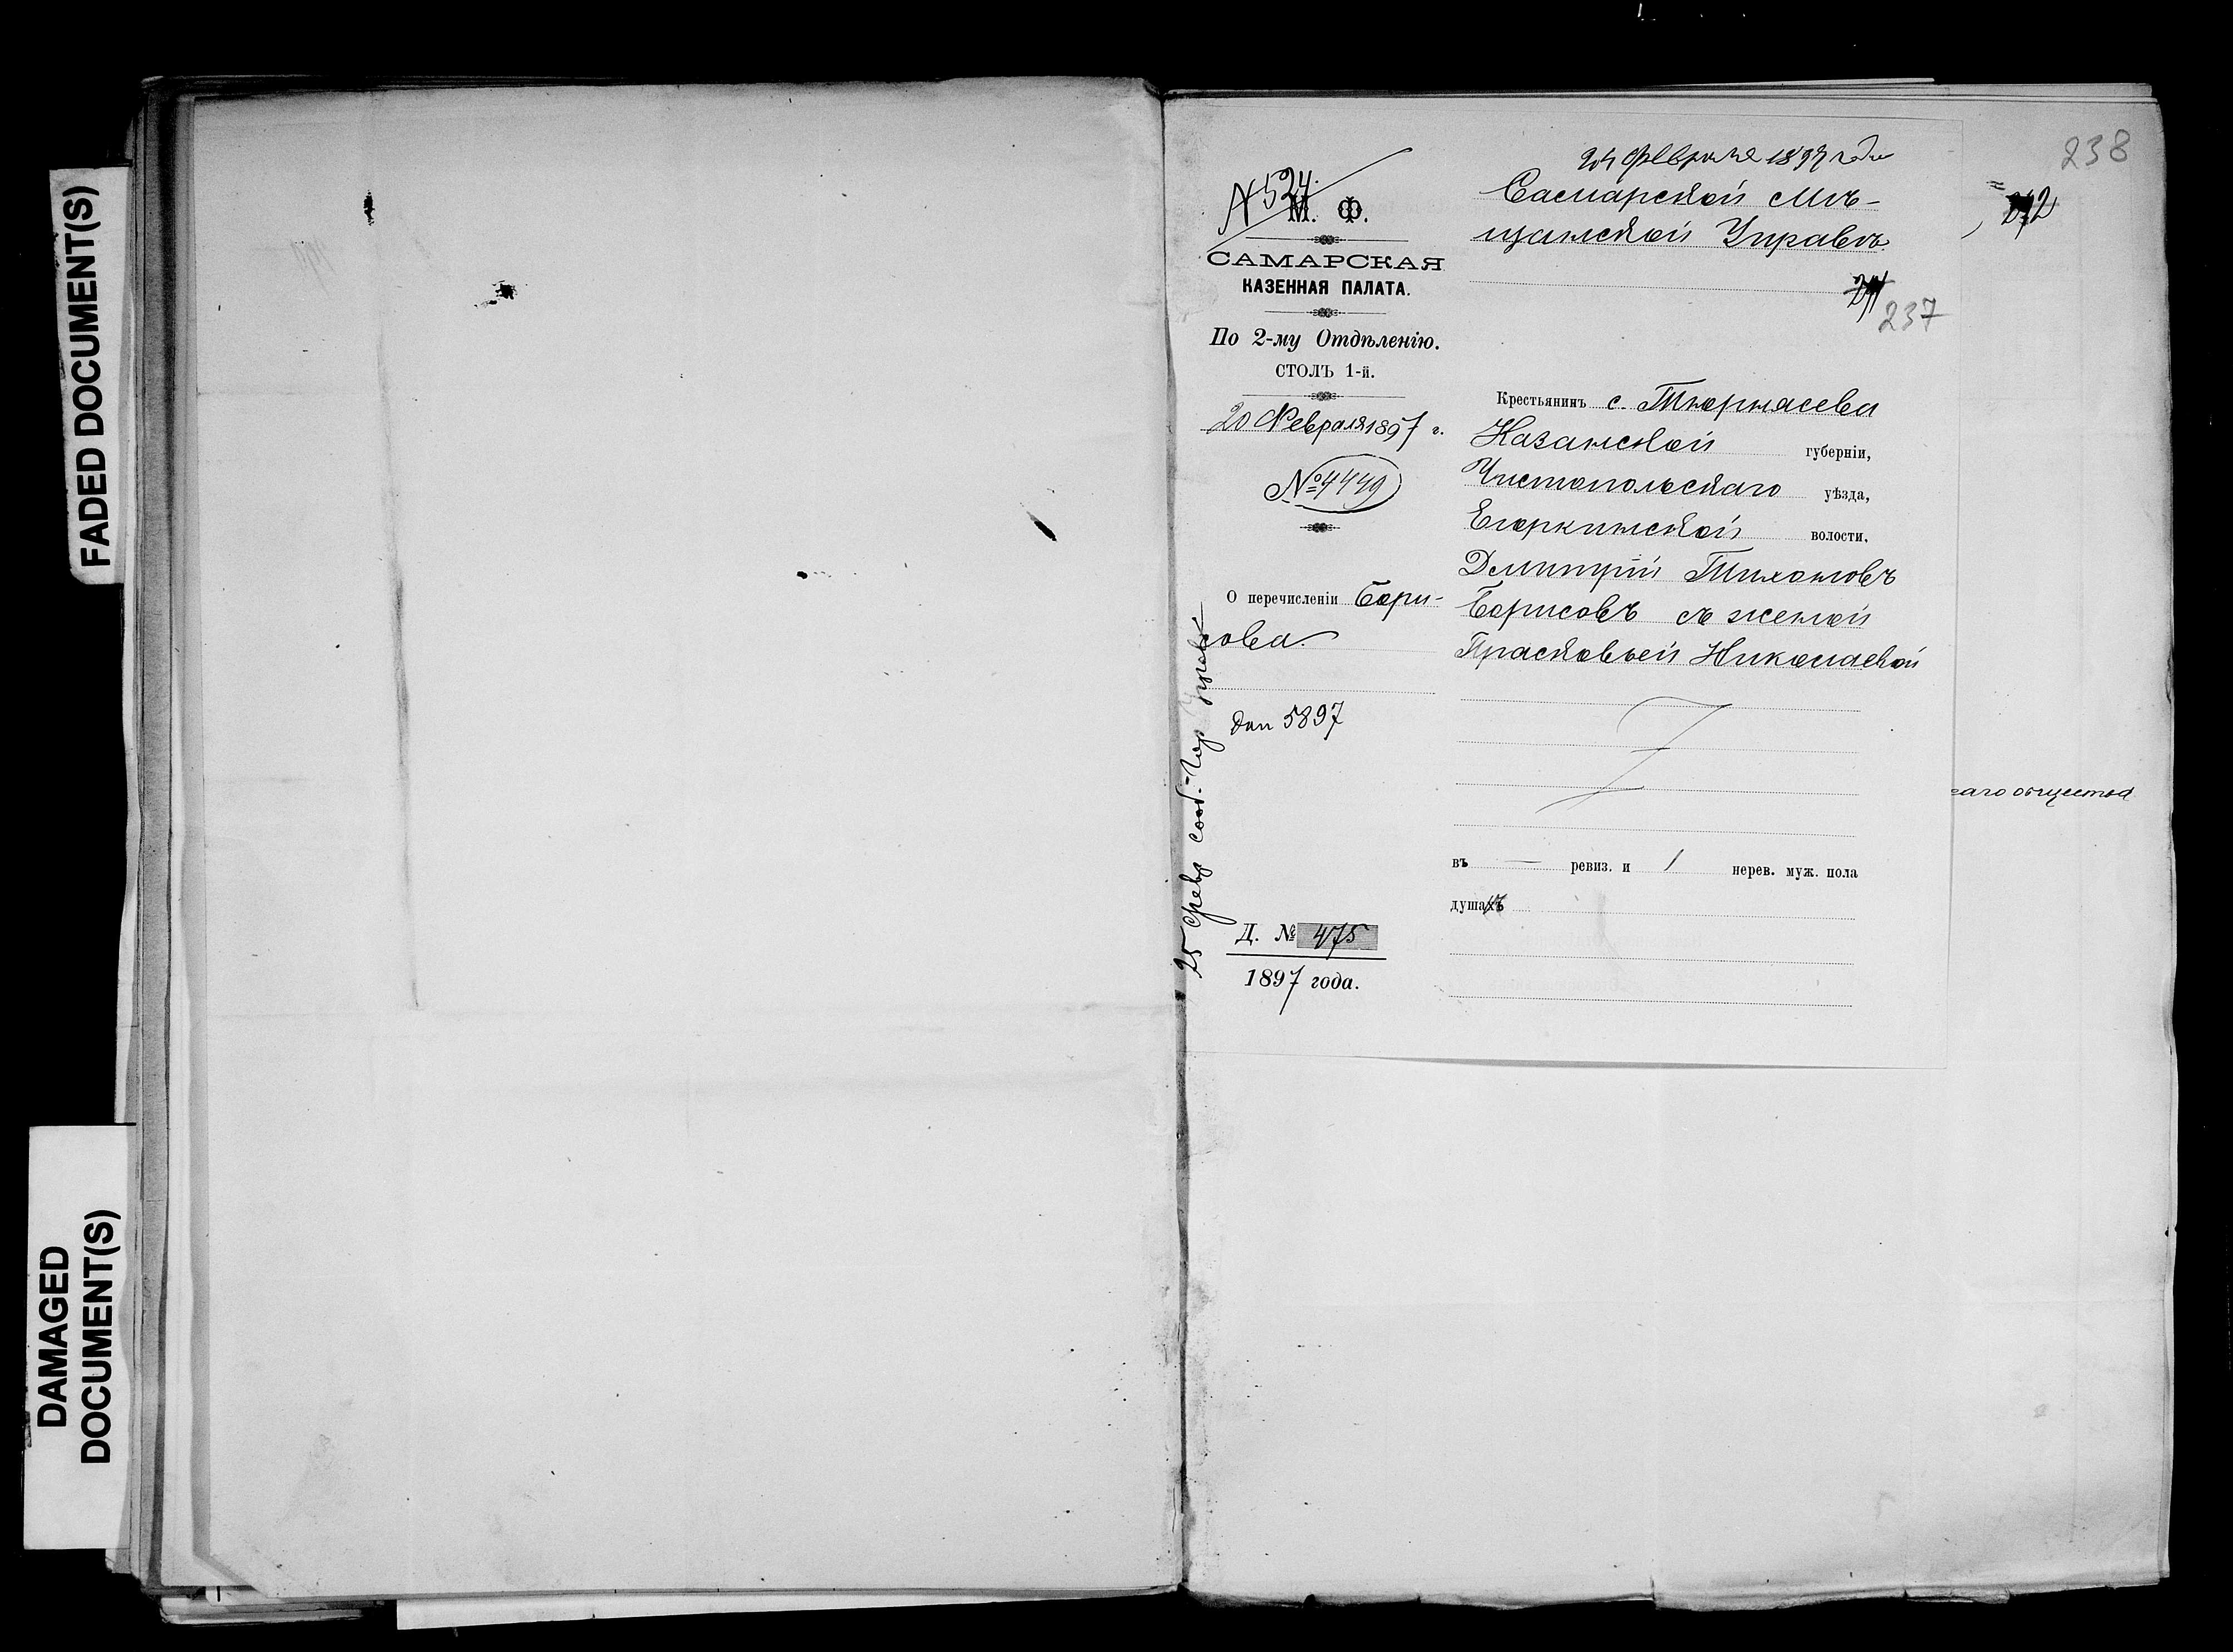 FADED DOCUMENT(S)
DAMAGED
DOCUMENT(S)
238
272
24 февраля 1897 года
N 524
М. Ф.
САМАРСКАЯ
КАЗЕННАЯ ПАЛАТА.
По 2-му Отдѣленію.
СТОЛЪ 1-й.
20 Февраля 1897 г.
№ 4449
О перечисленіи Бори-
сова.
дол 5897
Д. № 475
1897 года.
25 февр сооб. Гор Управѣ
Самарской Мѣ-
щанской Управѣ
237
Крестьянинъ с. Тюрнясева
Казанской губерніи,
Чистопольскаго уѣзда,
Егоркинской волости,
Дмитрій Тихоновъ
Борисовъ съ женой
Прасковьей Николаевой
въ — ревиз. и 1 нерев. муж. пола
душахъ
гаго общества